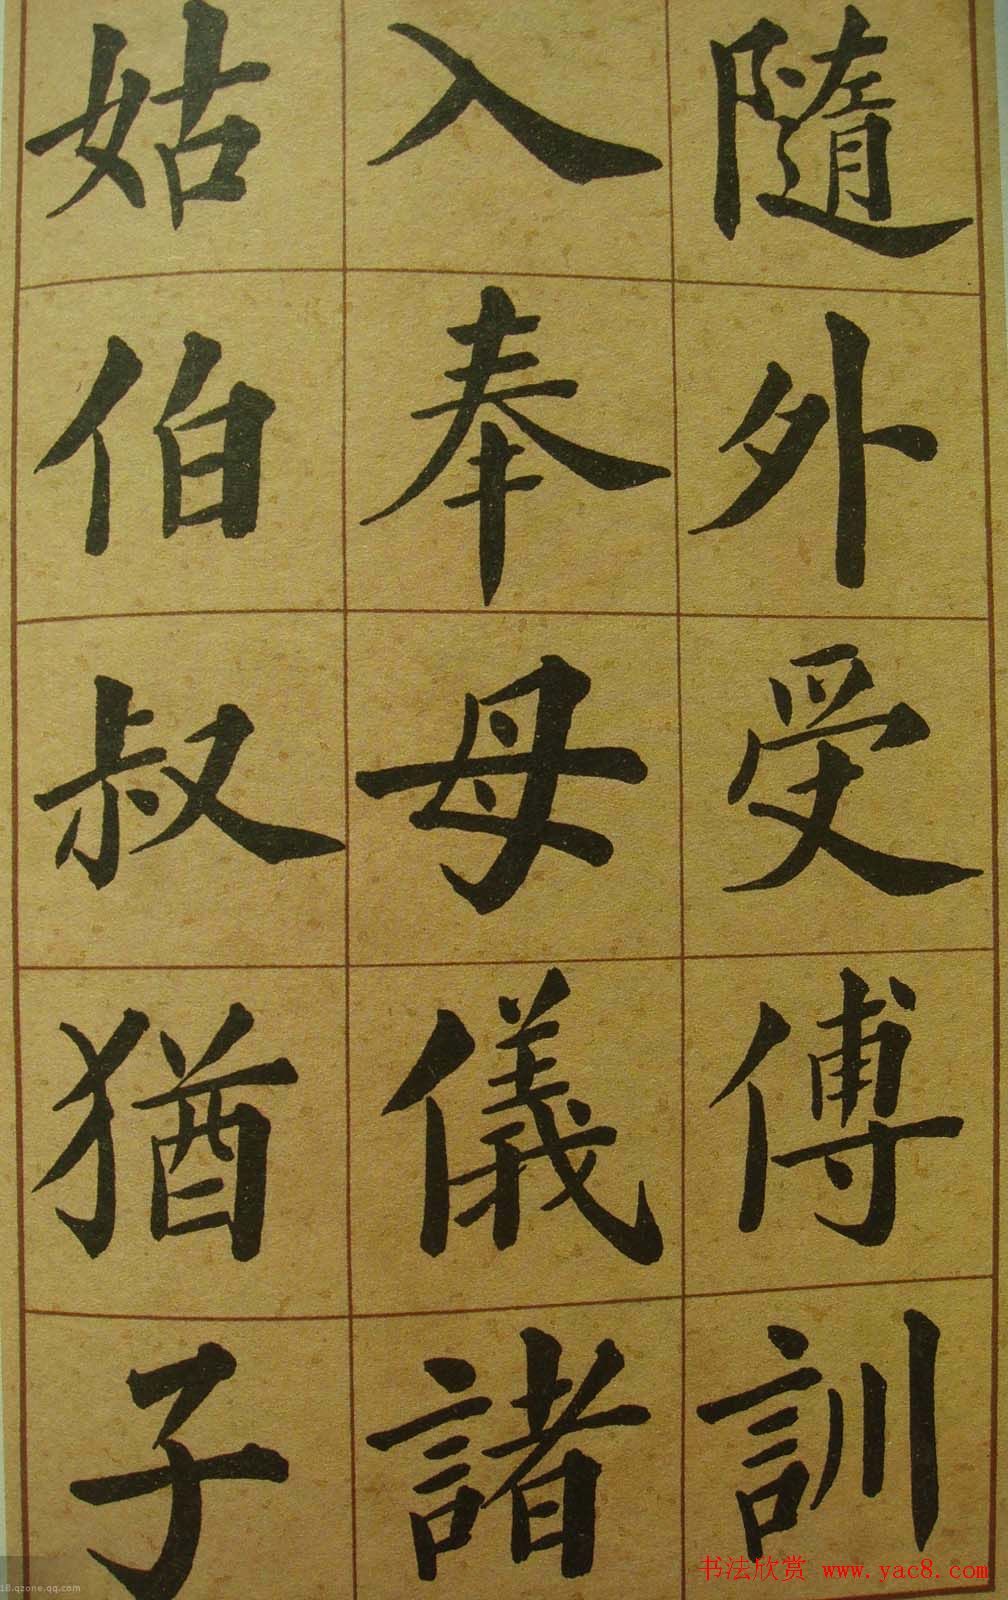 隨外受傅訓
入奉母儀諸
姑伯叔猶子
书法欣赏 www.yac8.com
iB.qzone.qq.com